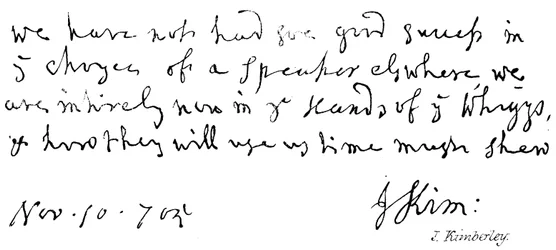 we have not had soe good success in
ẏ choyce of a speaker elswhere we
are intirely now in yͤ hands of ẏ Whiggs,
& how they will use us time must shew
Nov. 10. 705
J Kim:
J. Kimberley.